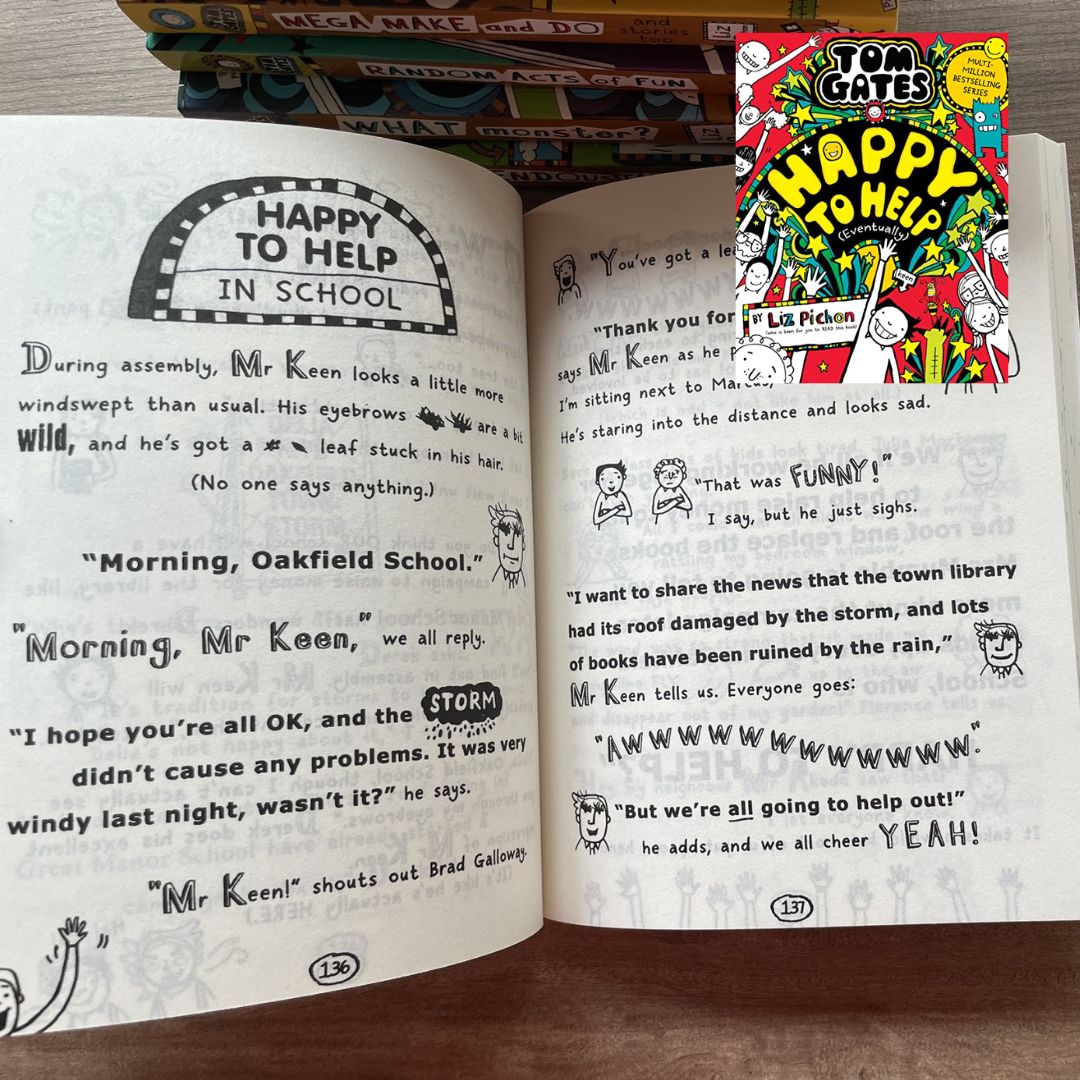 MEGA MAKE and DO
and
stories
too
RANDOM ACTS of FUN
WHAT monster?
TOM
GATES
MULTI-
MILLION
BESTSELLING
SERIES
HAPPY
TO HELP
(Eventually)
keen
BY Liz Pichon
HAPPY
TO HELP
IN SCHOOL
During assembly, Mr Keen looks a little more
windswept than usual. His eyebrows are a bit
wild, and he's got a leaf stuck in his hair.
(No one says anything.)
"Morning, Oakfield School."
"Morning, Mr Keen," we all reply.
"I hope you're all OK, and the STORM
didn't cause any problems. It was very
windy last night, wasn't it?" he says.
"Mr Keen!" shouts out Brad Galloway.
136
"You've got a
"Thank you for
says Mr Keen as he
I'm sitting next to Marcus,
He's staring into the distance and looks sad.
"That was FUNNY!"
I say, but he just sighs.
"I want to share the news that the town library
had its roof damaged by the storm, and lots
of books have been ruined by the rain,"
Mr Keen tells us. Everyone goes:
"AWWWWWWWWWWWWW."
"But we're all going to help out!"
he adds, and we all cheer YEAH!
137